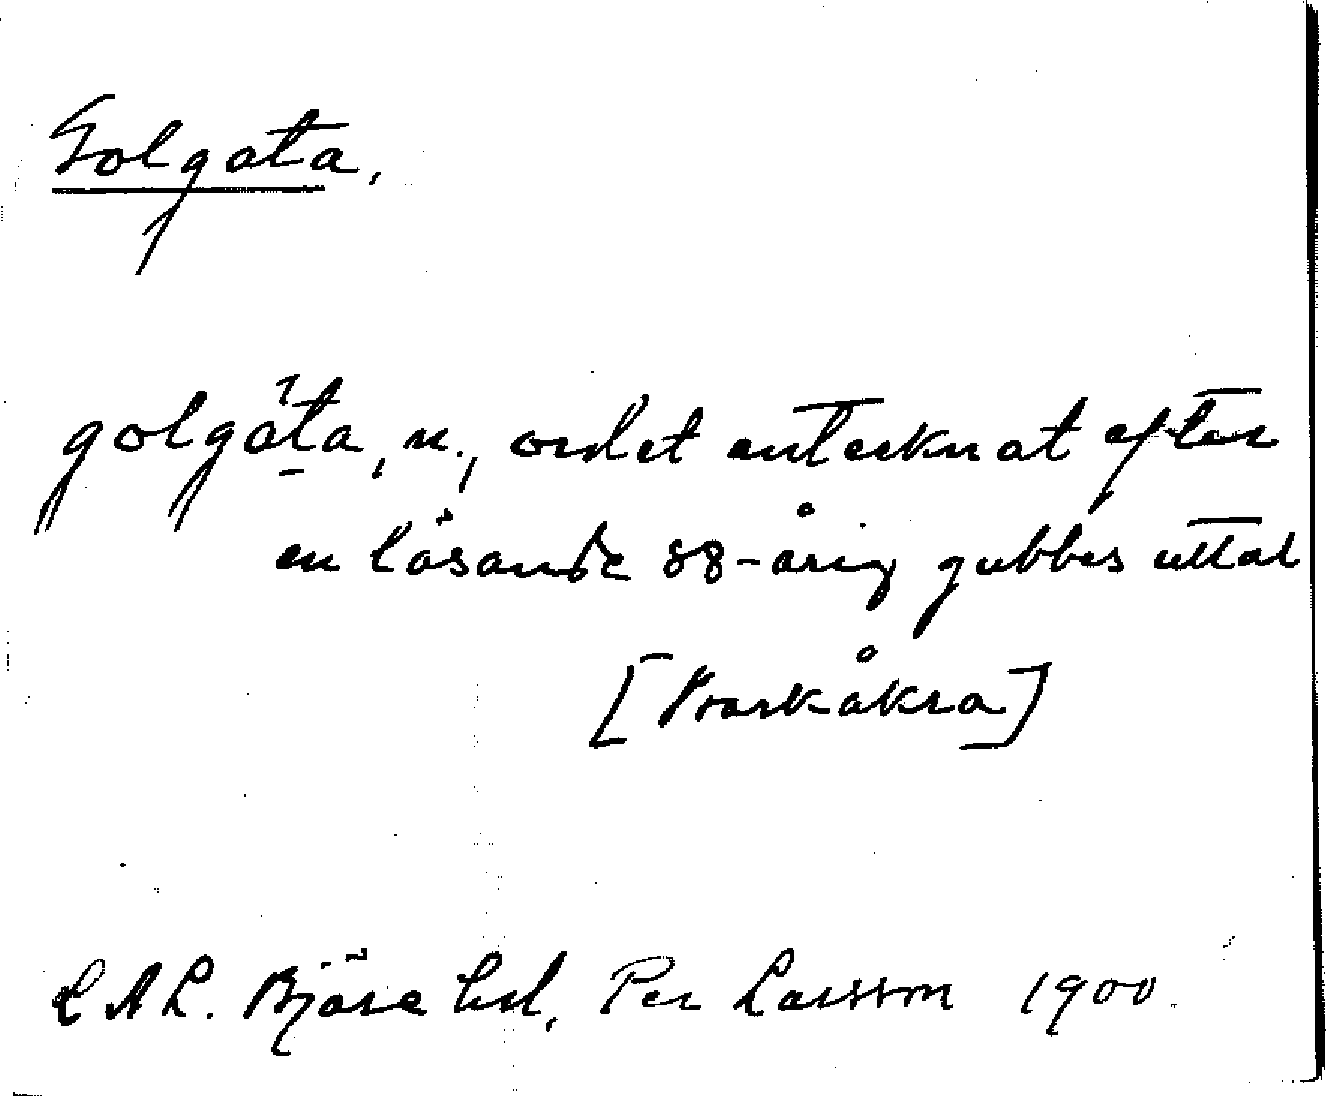 Golgata,
golgata, n., ordet antecknat efter
en läsande 88-årig gubbes uttal
[Barkåkra]
L A L. Bjäre hd, Per Larsson 1900.